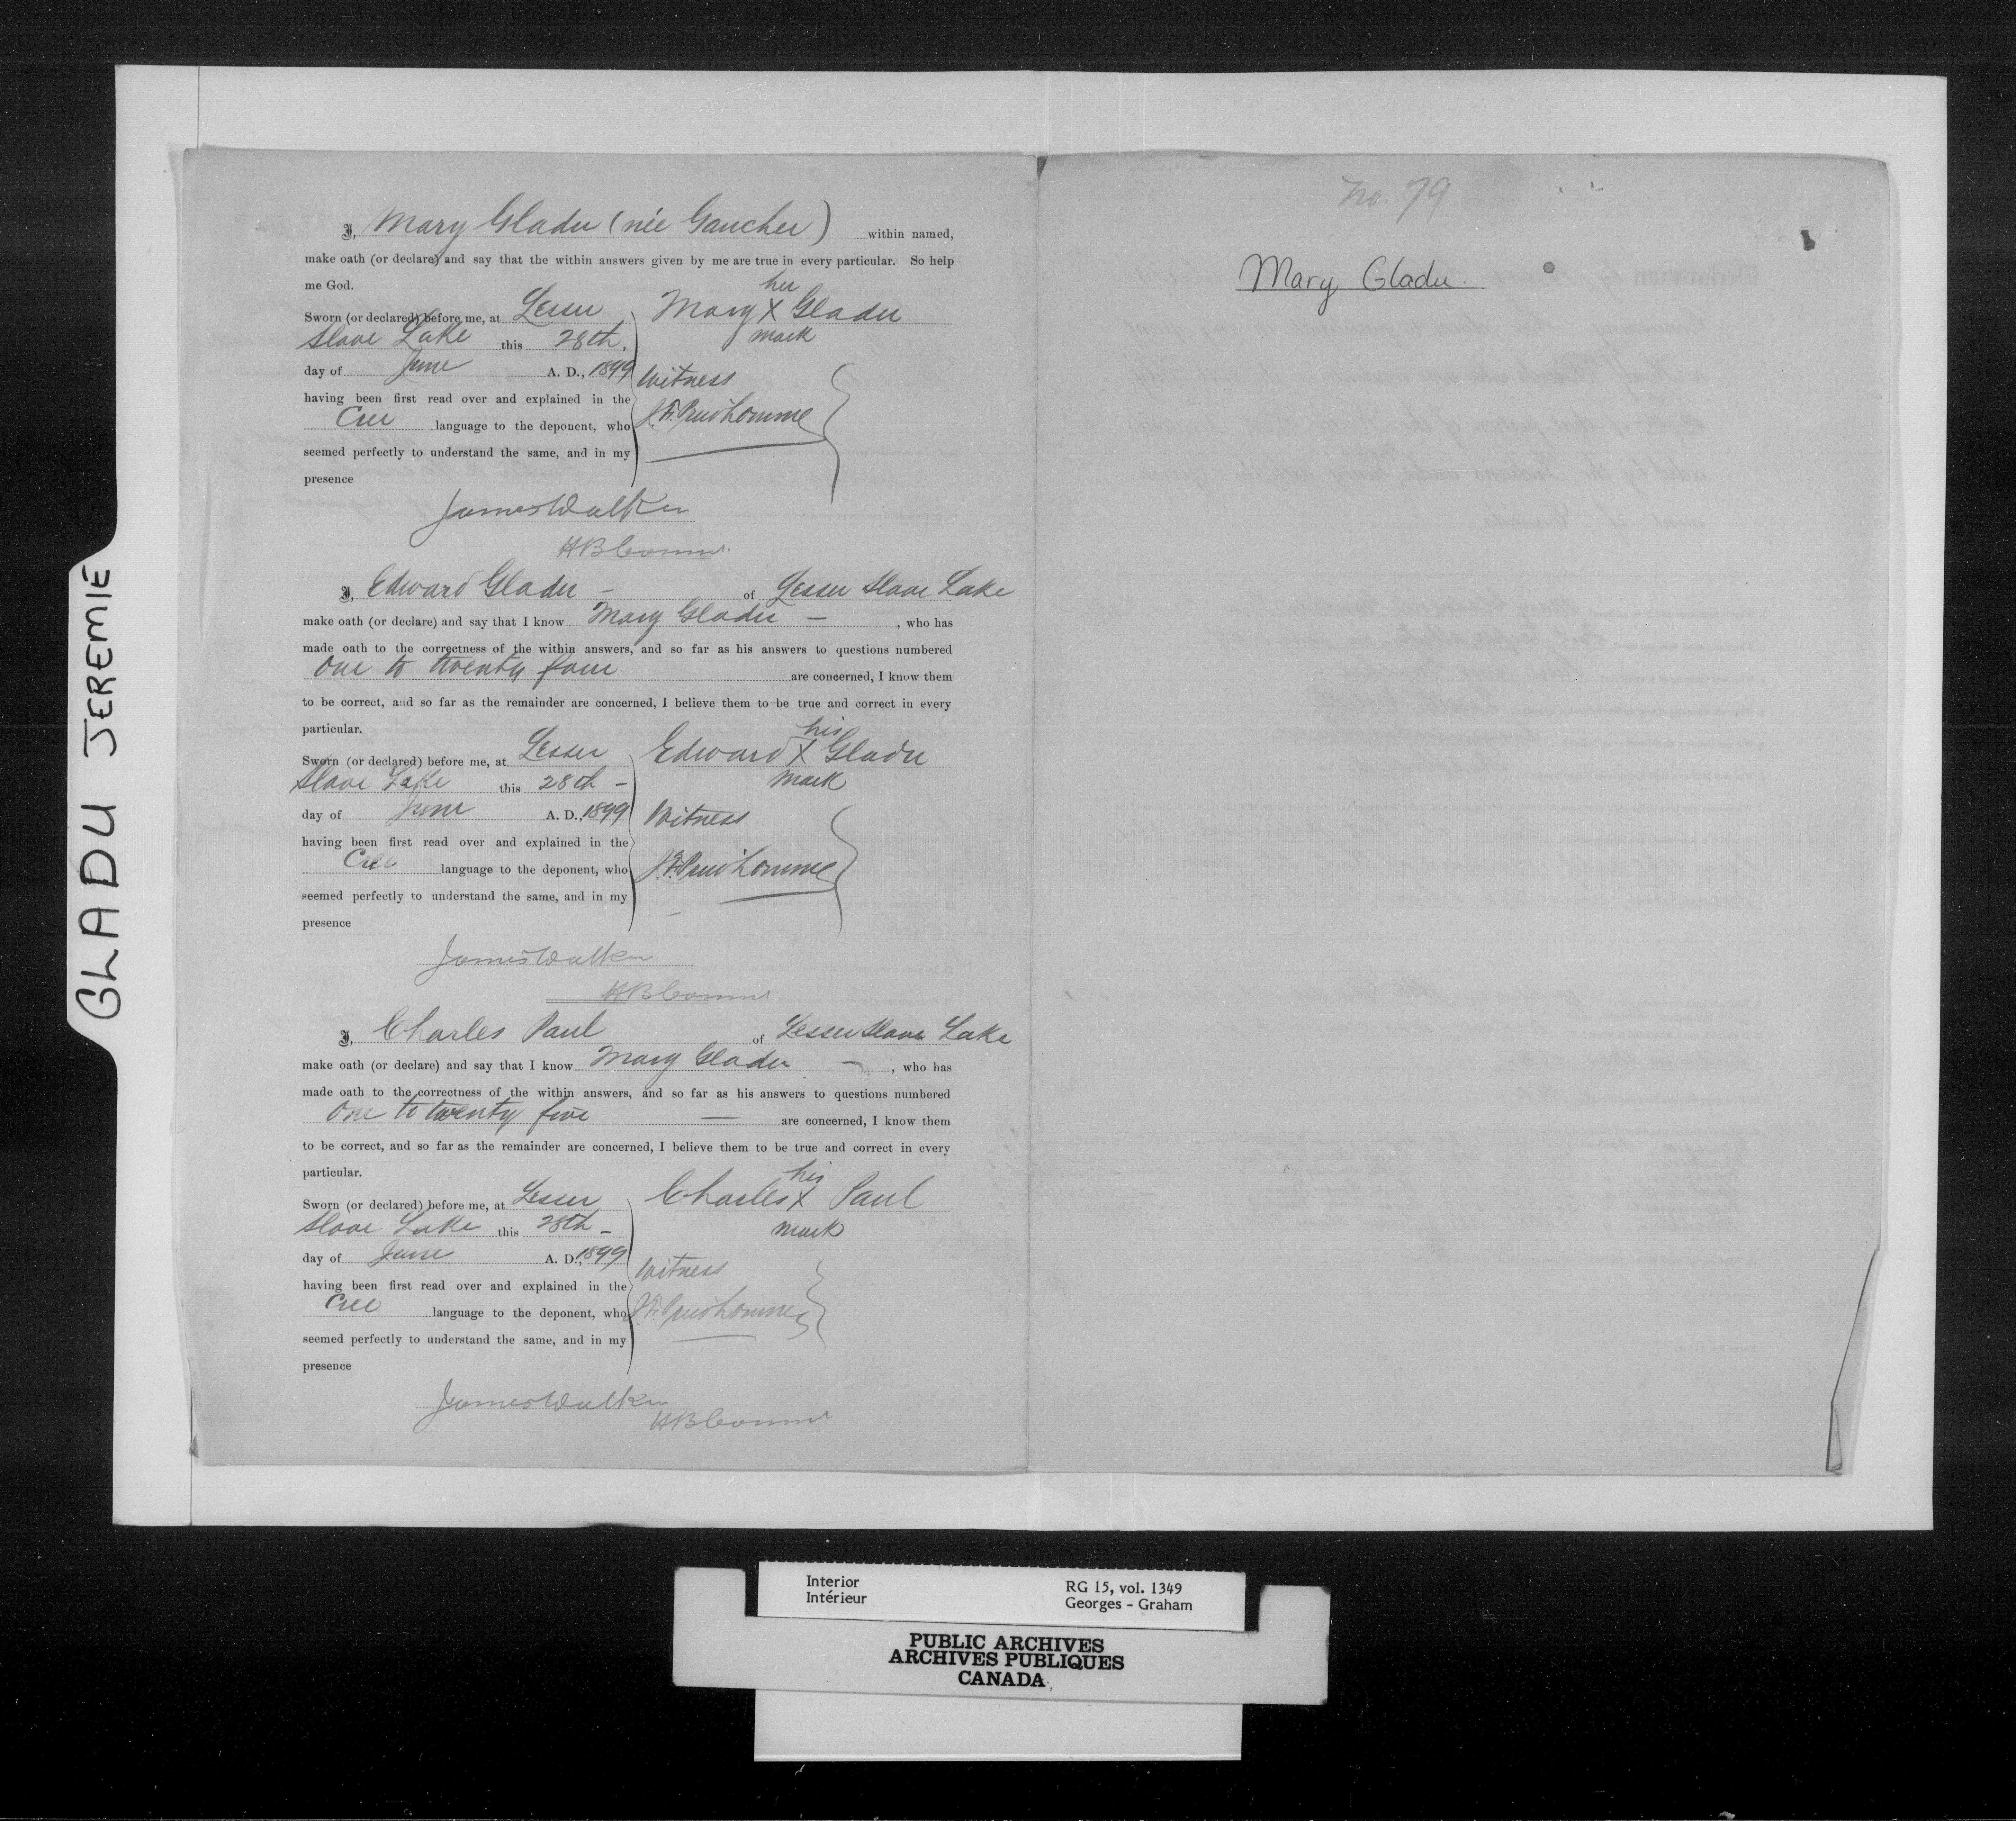 I, Mary Gladu (née Gaucher) within named,
make oath (or declare) and say that the within answers given by me are true in every particular. So help
me God.
Sworn (or declared) before me, at Lesser
Slave Lake this 28th.
day of June A. D., 1899
having been first read over and explained in the
Cree language to the deponent, who
seemed perfectly to understand the same, and in my
presence
her
Mary X Gladu
mark
Witness
J.F. Prudhomme
James Walker
HB Commr.
I, Edward Gladu - of Lesser Slave Lake
make oath (or declare) and say that I know Mary Gladu —, who has
made oath to the correctness of the within answers, and so far as his answers to questions numbered
One to twenty four are concerned, I know them
to be correct, and so far as the remainder are concerned, I believe them to be true and correct in every
particular.
Sworn (or declared) before me, at Lesser
Slave Lake this 28th -
day of June A. D., 1899
having been first read over and explained in the
Cree language to the deponent, who
seemed perfectly to understand the same, and in my
presence
his
Edward X Gladu
mark
Witness
J.F. Prudhomme
James Walker
HB Commr
I, Charles Paul of Lesser Slave Lake
make oath (or declare) and say that I know Mary Gladu —, who has
made oath to the correctness of the within answers, and so far as his answers to questions numbered
One to twenty five — are concerned, I know them
to be correct, and so far as the remainder are concerned, I believe them to be true and correct in every
particular.
Sworn (or declared) before me, at Lesser
Slave Lake this 28th -
day of June A. D., 1899
having been first read over and explained in the
Cree language to the deponent, who
seemed perfectly to understand the same, and in my
presence
his
Charles X Paul
mark
Witness
J.F. Prudhomme
James Walker
HB Commr
No. 79
Mary Gladu.
GLADU JEREMIÉ
Interior
Intérieur
RG 15, vol. 1349
Georges - Graham
PUBLIC ARCHIVES
ARCHIVES PUBLIQUES
CANADA